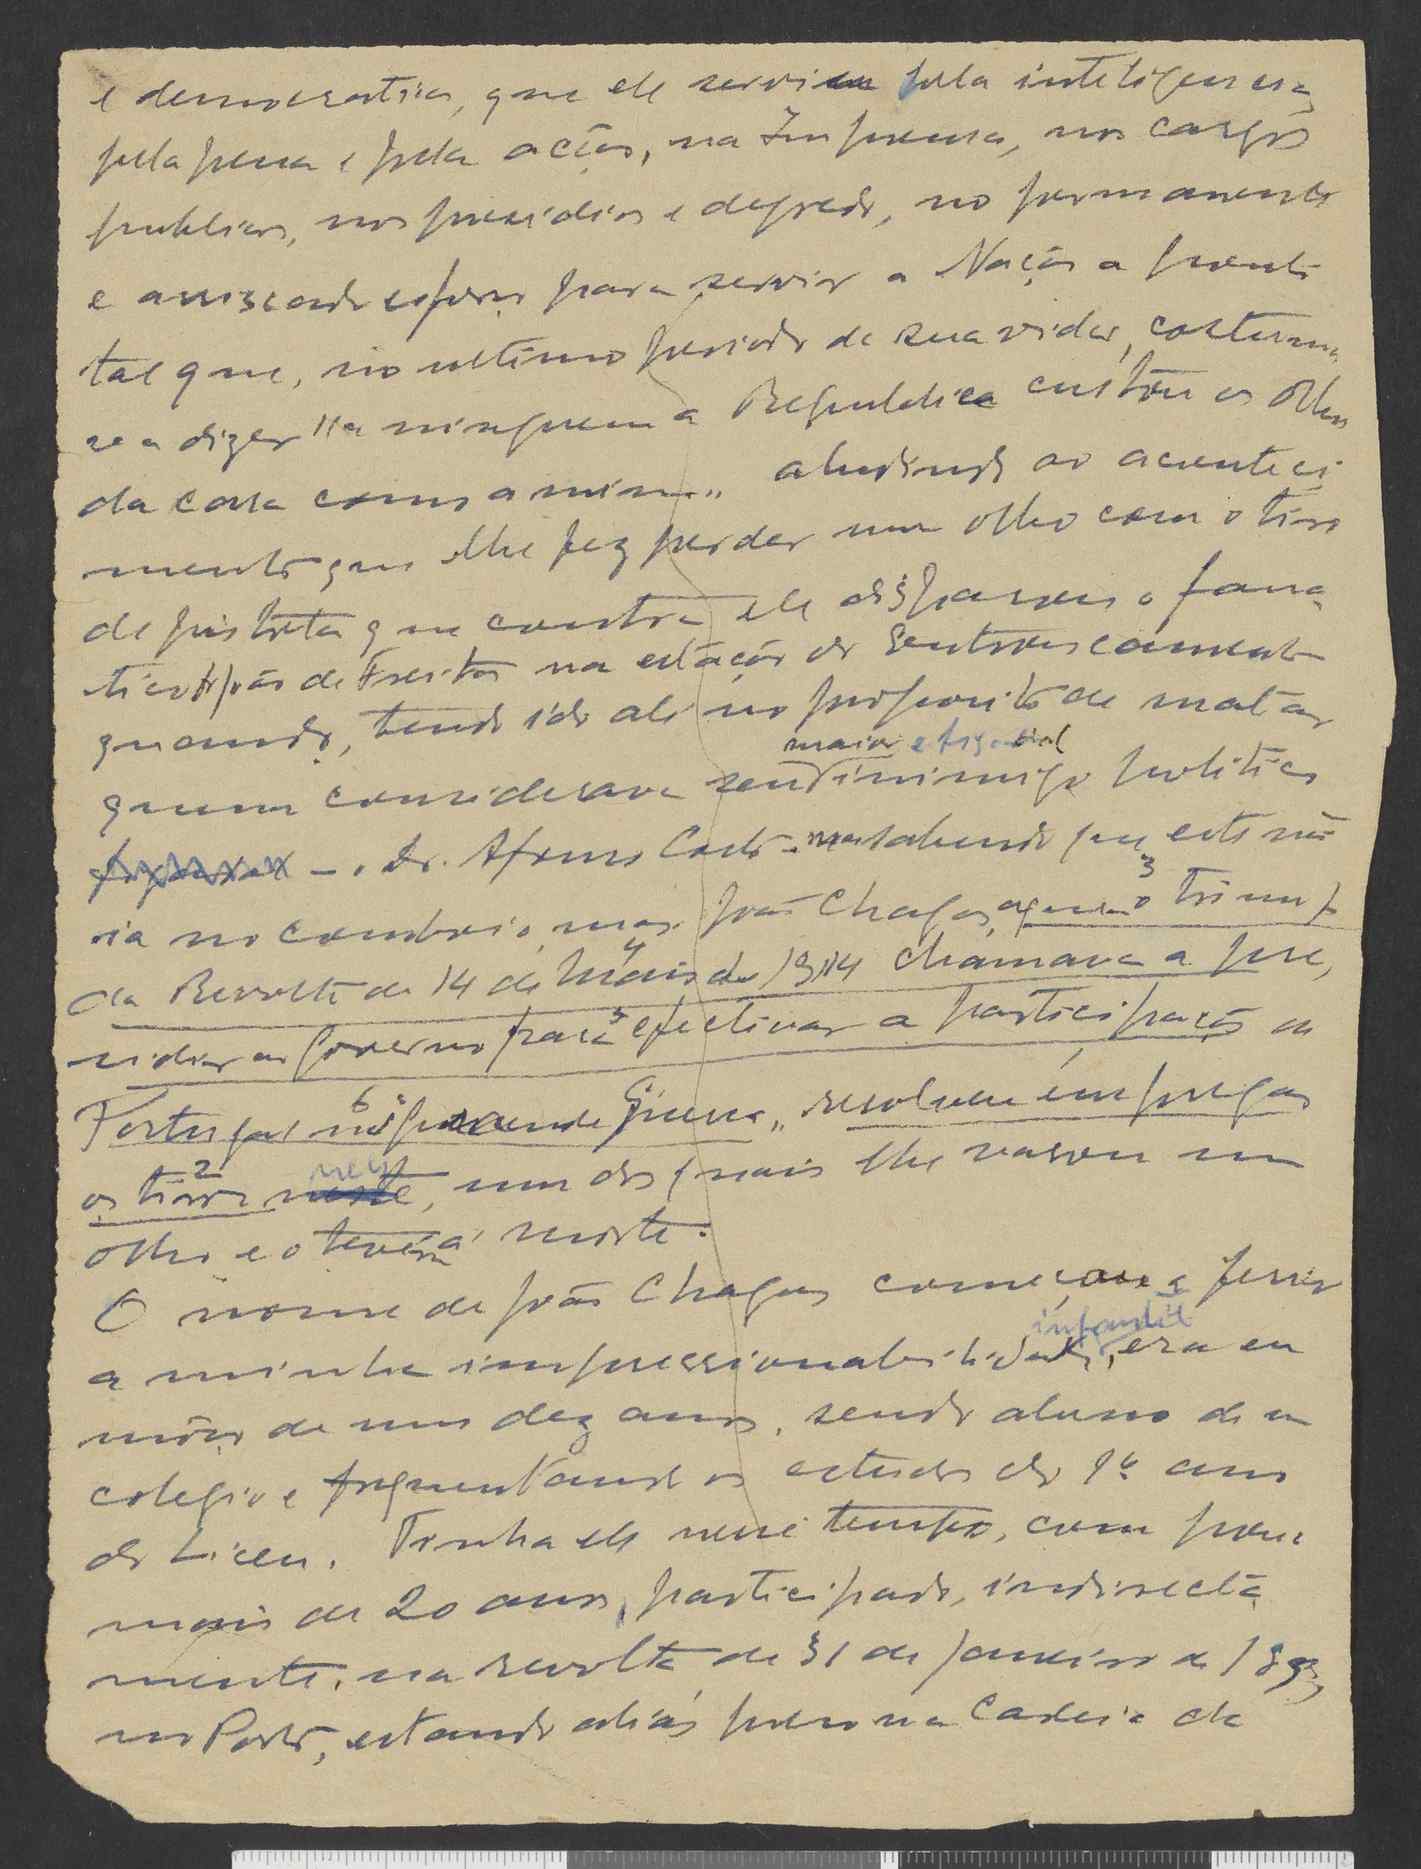 e democratica, que ele serviu pela inteligencia,
pela pena e pela acção, na Imprensa, nos cargos
publicos, nos presidios e degredo, no permanente
e arriscado esforço para servir a Nação a ponto
tal que, no ultimo periodo de sua vida, costuma
se a dizer "a ninguem a Republica custou os olhos
da cara como a mim" aludindo ao aconteci
mento que lhe fez perder um olho com o tiro
de pistola que contra ele disparou o fana
tico João de Freitas na estação do Entroncamento
quando, tendo ido ali no proposito de matar
maior e figadal
quem considerava seu inimigo politico
figadal - o Dr. Afonso Costa - mas sabendo que este não
ia no comboio, mas João Chagas, a quem o 3 triunfo
da Revolta de 14 de 4 Maio de 1914 chamava a pre,
sidir ao Governo para 5 efectivar a participação de
Portugal 6 na grande Guerra, resolveu empregar
os tiros 2 neste, um dos quais lhe vasou um
nele
olho e o teve á morte.
O nome de João Chagas começou a ferir
infantil
a minha impressionabilidade, era eu
moço de uns dez anos, sendo aluno de um
colegio e frequentando os estudos do 1º ano
do Liceu. Tinha ele nesse tempo, com pouco
mais de 20 anos, participado, indirecta
mente, na revolta de 31 de Janeiro de
no Porto, estando aliás preso na Cadeia da